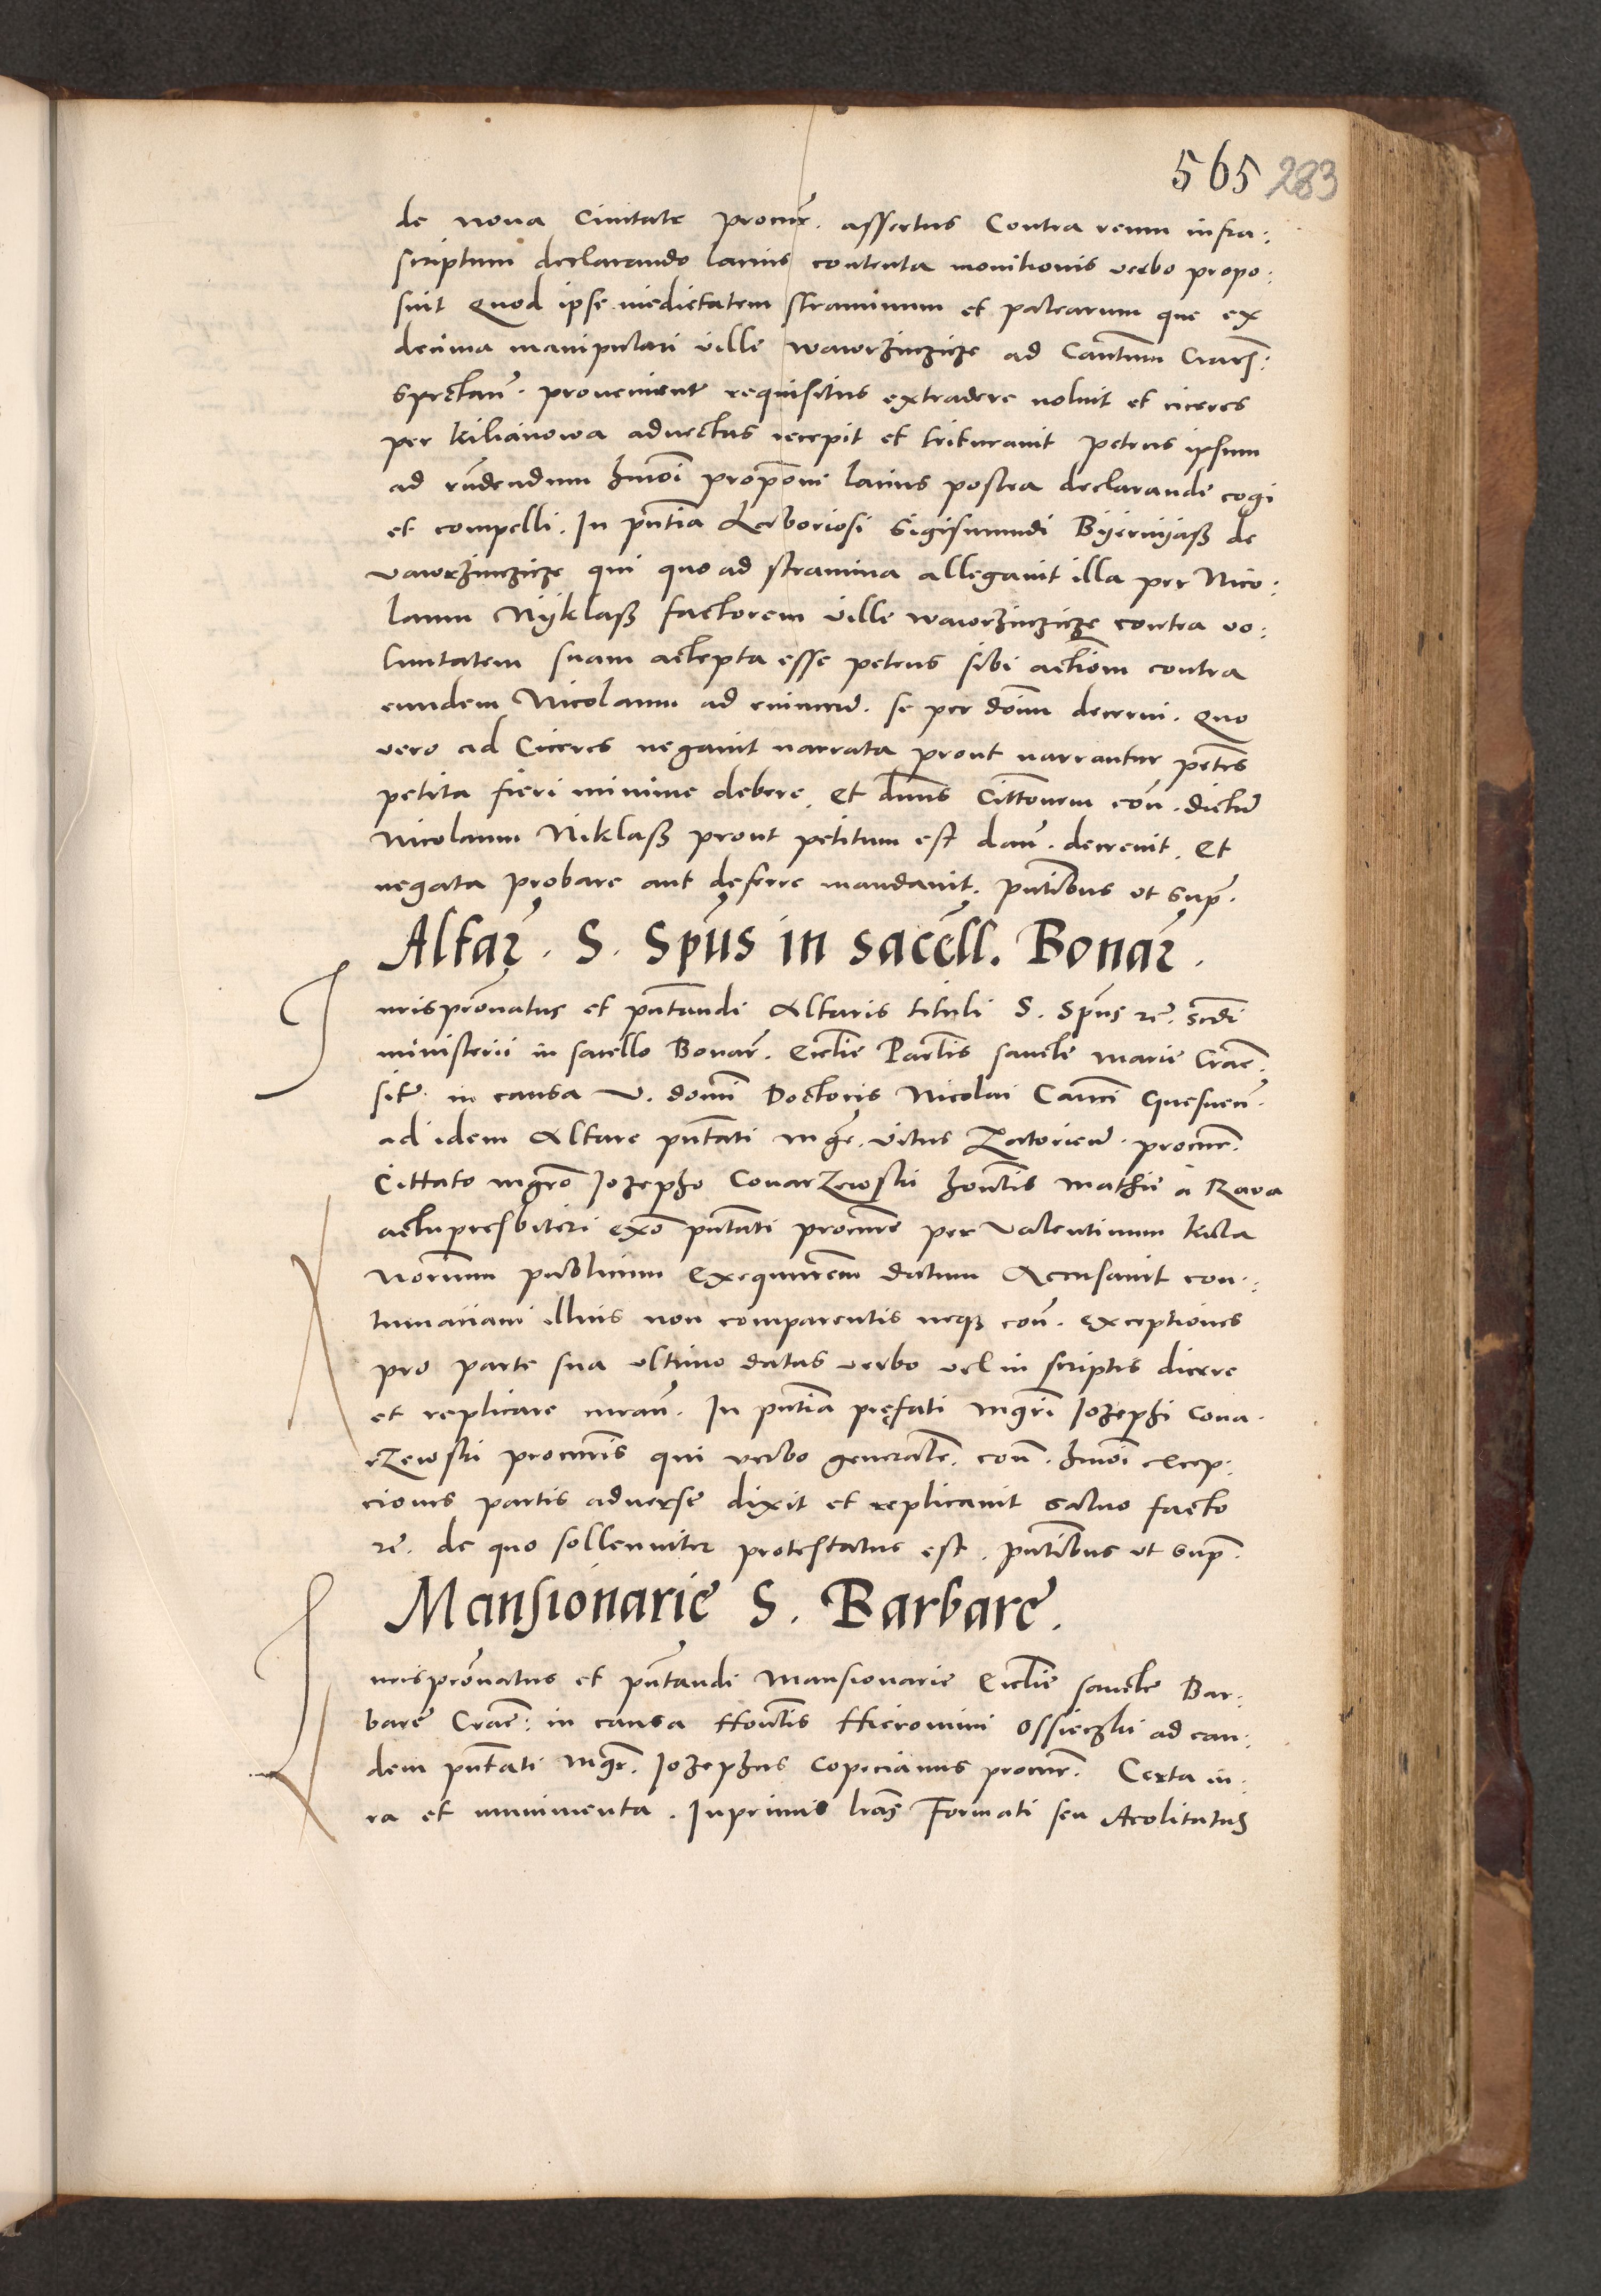 565 283
de nova Civitate procur̃. assertus Contra reum infra:
scriptum declarando lacius contenta monitionis verbo propo:
suit Quod ipse medietatem straminum et palearum que ex
decima manipulari ville waworzinczicze ad Cantum Cracs̃:
spectañ. proveniunt requisitus extradere noluit et ciceres
per kilianowa advectas recepit et trituravit petens ipsum
ad rñdendum hmõi propõni lacius postea declarande cogi
et compelli. In pñtia Laboriosi Sigismundi Byernyaß de
vaworzinczicze qui quo ad stramina allegavit illa per Nico:
laum Nyklaß factorem ville waworzinczicze contra vo:
luntatem suam accepta esse petens sibi actiom̃ contra
eundem Nicolaum ad evincend̃. se per dom̃ decerni. Quo
vero ad Ciceres negavit narrata prout narrantur petẽs
petita fieri minime debere. Et dñns Cittõnem coñ. dictũ
Nicolaum Niklaß prout petitum est dañ. decrevit. Et
negata probare aut deferre mandavit. pñtibus vt sup̃.
Altar̃. S. Spũs in sacell̃. Bonar̃.
Jurisprõnatus et pñtandi Altaris tituli S. Spũs rẽ. scd̃i
ministerii in sacello Bonar̃. Ecclie Parlis̃ sancte marie Crac̃.
sit̃. in causa V. domĩ Doctoris Nicolai Canci Gnesneñ.
ad idem Altare pñtati mgr̃. vitus Zatorien̄. procur̃.
Cittato mgrõ Jozepho Conarzewski hontĩs mathie à Rava
actu presbiteri exõ pñtati procurẽ per Valentinum kula
Norium̃ publicum Exequutrem̃ datum Accusavit con:
tumaciam illius non comparentis neqȝ coñ. exceptiones
pro parte sua ultimo datas verbo vel in scriptis dicere
et replicare curañ. In pñtia prefati mgrĩ Jozephi Cona
rzewski procurĩs qui verbo generalẽ. coñ. hmõi excep:
ciones partis adverse dixit et replicavit salvo facto
rẽ. de quo sollenniter protestatus est. pñtibus vt sup̃.
Mansionarie S. Barbare.
Jurisprõnatus et pñtandi Mansionarie Ecclie sancte Bar:
bare Crac̃: in causa Hontĩs Hieronimi Ossieczki ad ean:
dem pñtati mgr̃. Jozephus Copicianus procur̃. Certa iu.
ra et munimenta. Inprimis lrãs Formati seu Acolitatus